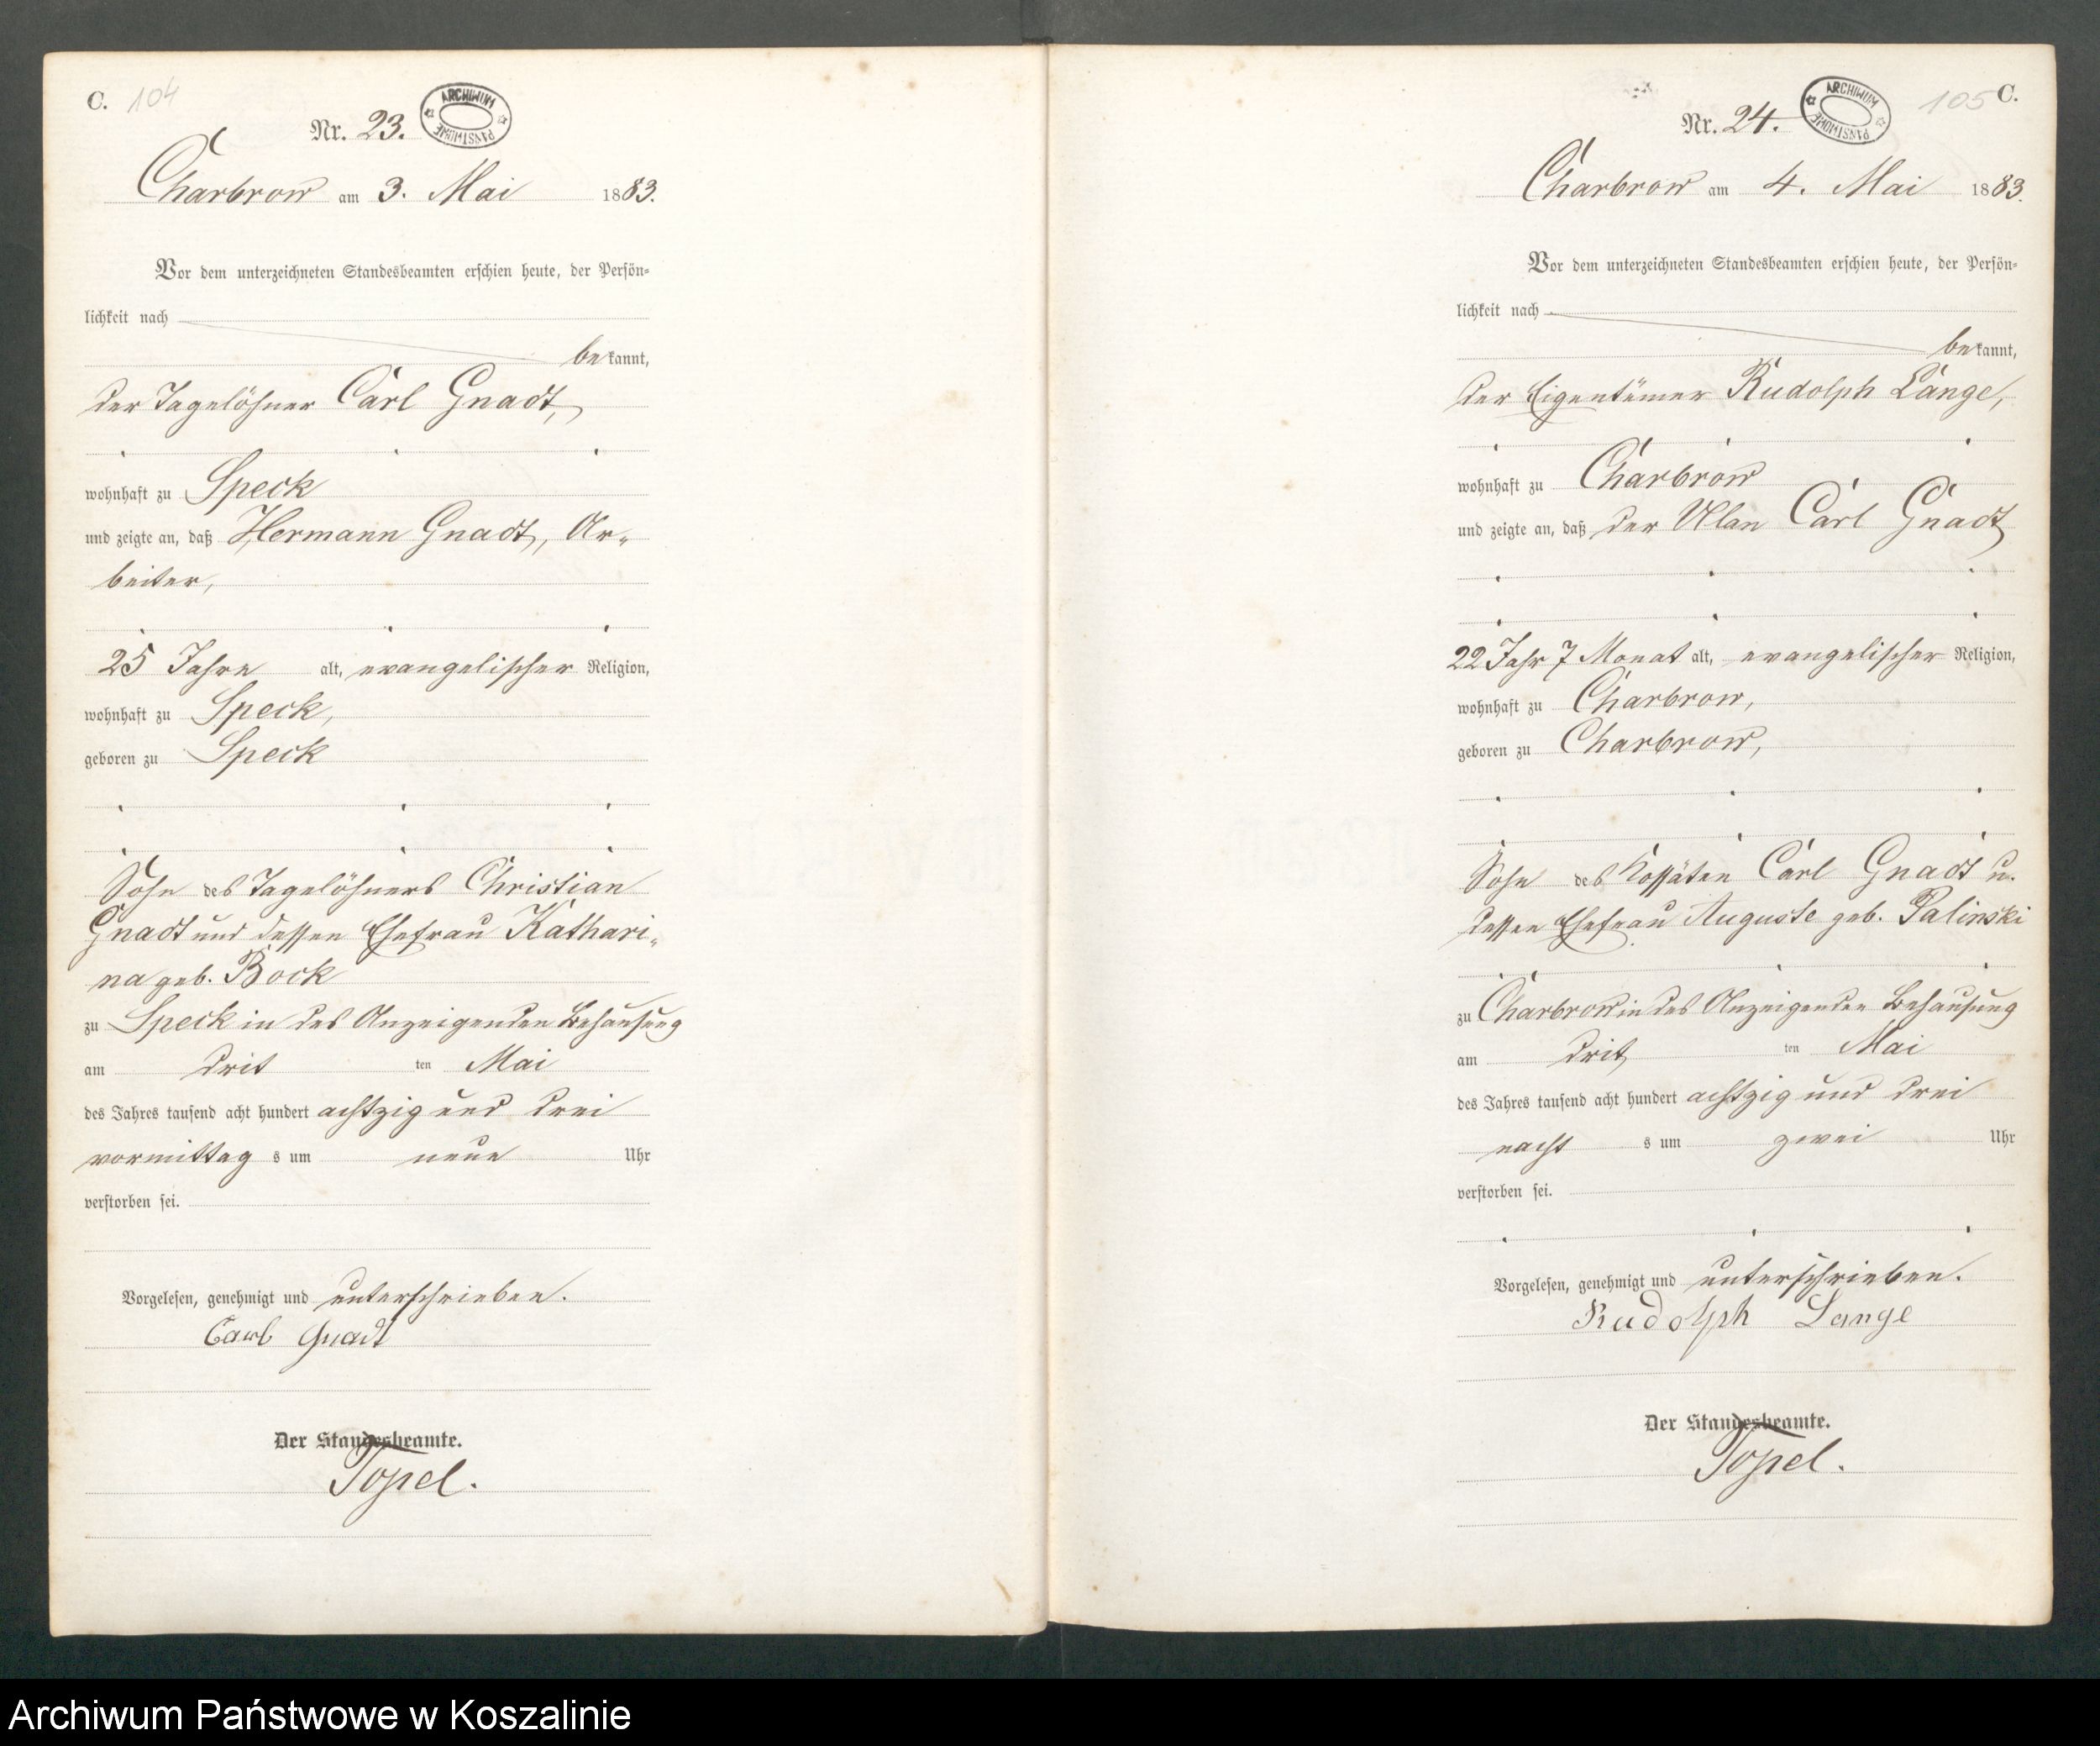 C. 104
Nr. 23.
ARCHIWUM PAŃSTWOWE
Charbrow am 3. Mai 1883.
Vor dem unterzeichneten Standesbeamten erschien heute, der Persön-
lichkeit nach
bekannt,
der Tagelöhner Carl Gnadt,
wohnhaft zu Speck
und zeigte an, daß Hermann Gnadt, Ar-
beiter,
25 Jahre alt, evangelischer Religion,
wohnhaft zu Speck,
geboren zu Speck
Sohn des Tagelöhners Christian
Gnadt und dessen Ehefrau Kathari-
na geb. Bock
zu Speck in des Anzeigenden Behausung
am drit ten Mai
des Jahres tausend acht hundert achtzig und drei
vormittag s um neun Uhr
verstorben sei.
Vorgelesen, genehmigt und unterschrieben.
Carl Gnadt
Der Standesbeamte.
Topel.
105 C.
Nr. 24.
ARCHIWUM PAŃSTWOWE
Charbrow am 4. Mai 1883.
Vor dem unterzeichneten Standesbeamten erschien heute, der Persön-
lichkeit nach
bekannt,
der Eigentümer Rudolph Lange,
wohnhaft zu Charbrow
und zeigte an, daß der Ulan Carl Gnadt
22 Jahr 7 Monat alt, evangelischer Religion,
wohnhaft zu Charbrow,
geboren zu Charbrow,
Sohn des Kossäten Carl Gnadt u.
dessen Ehefrau Auguste geb. Palinski
zu Charbrow in des Anzeigenden Behausung
am drit ten Mai
des Jahres tausend acht hundert achtzig und drei
nacht s um zwei Uhr
verstorben sei.
Vorgelesen, genehmigt und unterschrieben.
Rudolph Lange
Der Standesbeamte.
Topel.
Archiwum Państwowe w Koszalinie